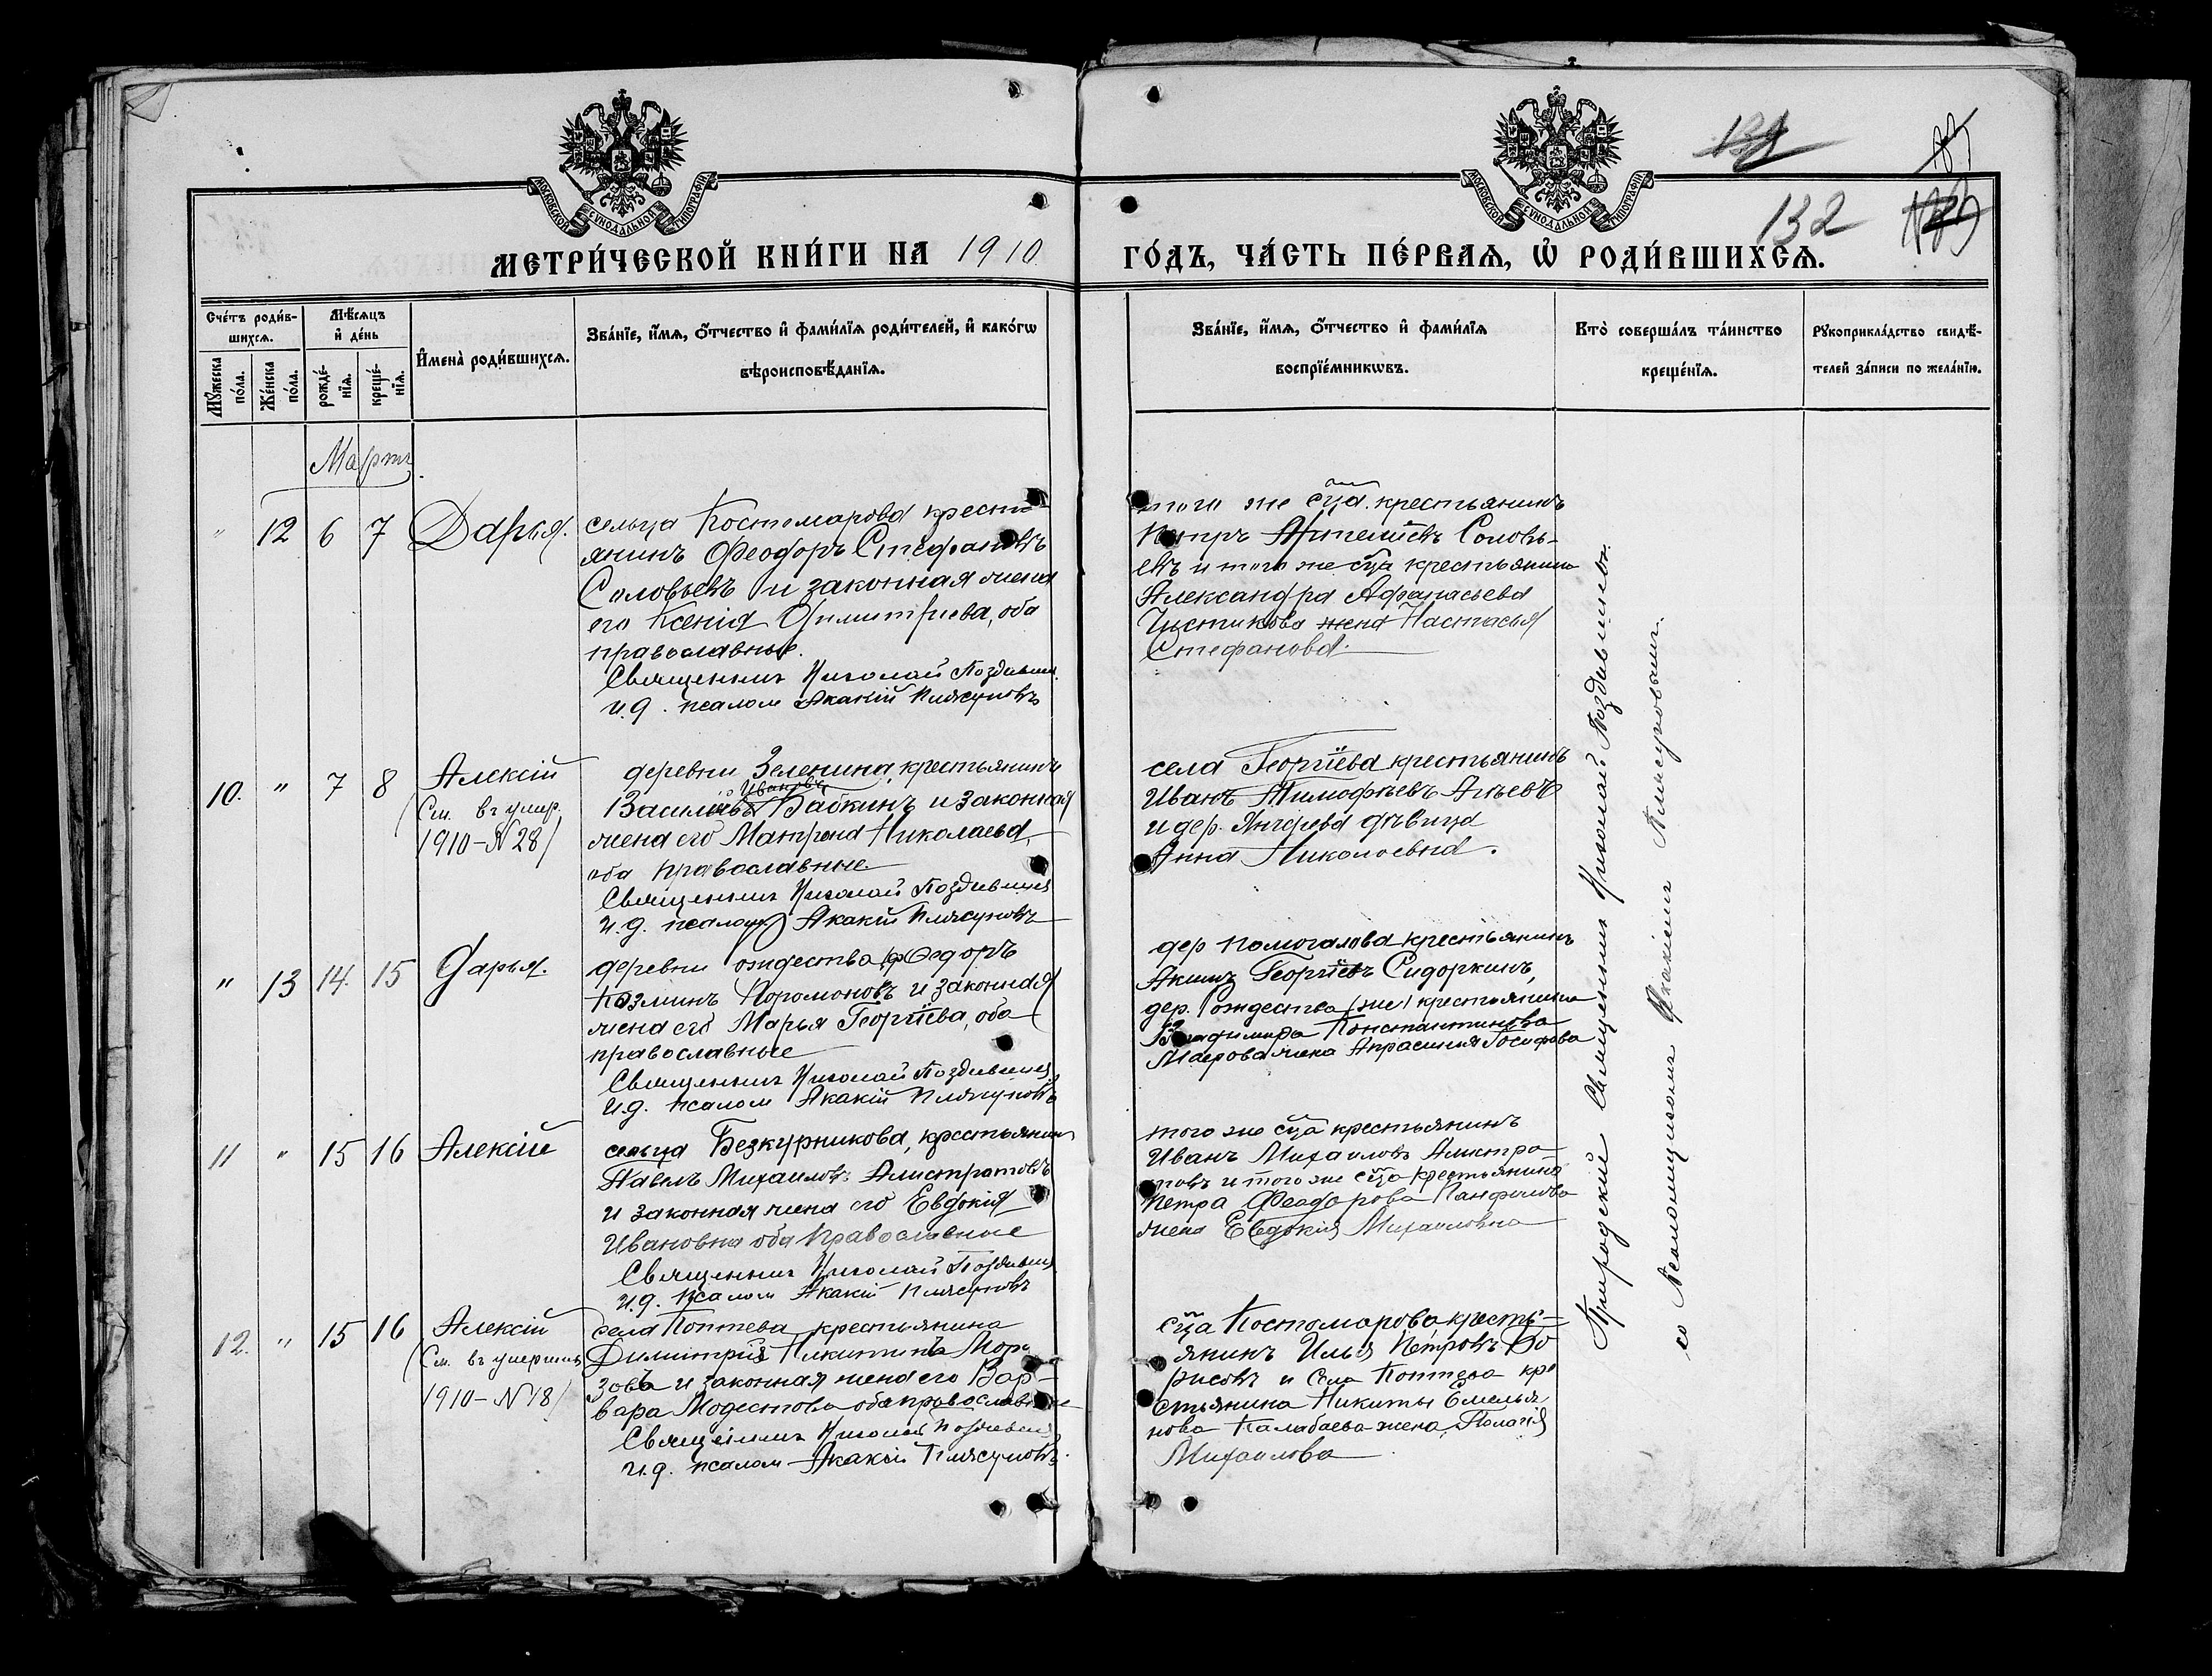 132
МОСКОВСКОЙ СѴНОДАЛЬНОЙ ТИПОГРАФІИ
МОСКОВСКОЙ СѴНОДАЛЬНОЙ ТИПОГРАФІИ
МЕТРИ́ЧЕСКОЙ КНИ́ГИ НА 1910.
ГО́ДЪ, ЧА́СТЬ ПЕ́РВАѦ, Ѽ РОДИ́ВШИХСѦ.
Сче́тъ роди́в-
шихсѧ.
Мꙋ́жеска
по́ла.
Же́нска
по́ла.
Мѣ́сѧцъ
и҆ де́нь
рожде́-
нїѧ.
креще́-
нїѧ.
И҆мена̀ роди́вшихсѧ.
Зва́нїе, и҆́мѧ, ѻ҆́тчество и҆ фами́лїѧ роди́телей, и҆ како́гѡ
вѣроисповѣ́данїѧ.
Зва́нїе, и҆́мѧ, ѻ҆́тчество и҆ фами́лїѧ
воспрїе́мникѡвъ.
Кто̀ соверша́лъ та́инство
креще́нїѧ.
Рꙋкоприкла́дство свидѣ́-
телей за́писи по жела́нїю.
Мартъ
" 12 6 7 Дарья.
сельца Костомарова кресть-
янинъ Феодоръ Стефановъ
Соловьевъ и законная жена
его Ксенія Димитріева, оба
православные.
Священникъ Николай Поздвиж.
и. д. псалом Акакій Плясуновъ
того же сца крестьянинъ
Петръ Артемьевъ Соловь-
евъ и того же сца крестьянина
Александра Афанасьева
Чистикова жена Настасья
Стефанова.
10. " 7 8 Алексій
(См. въ умер.
1910 - N 28)
деревни Зеленина крестьянинъ
Ивановъ
Василій Бабкинъ и законная
жена его Матрона Николаева,
оба православные.
Священникъ Николай
и. д. псалом Акакій Плясуновъ
села Георгіева крестьянинъ
Иванъ Тимофѣевъ Агѣевъ
и дер. дѣвица
Анна Николаевна.
" 13 14. 15 Дарья.
деревни ождества Федоръ
Козминъ Поромоновъ и законная
жена его Марья Георгіева, оба
православные
Священникъ Николай
и. д. псалом Акакій Плясуновъ
дер Помогалова крестьянинъ
Акимъ Георгіевъ Сидоркинъ,
дер. Рождества (же) крестьянина
Владимира Константинова
Маерова жена Апраксинья Іосифова
11 " 15 16 Алексій
сельца Безкурникова, крестьянинъ
Павелъ Михаиловъ Алистратовъ
и законная жена его Евдокія
Ивановна оба православные
Священникъ Николай
и. д. псалом Акакій Плясуновъ
того же сца крестьянинъ
Иванъ Михаиловъ Алистра-
товъ и того же сца крестьянина
Петра Феодорова Панфилова
жена Евдокія Михаиловна
12. " 15 16 Алексій
(См. въ умершихъ
1910 - N 18)
села Коптева крестьянина
Димитрія Никитинъ Моро
зовъ и законная жена его Вар-
вара Модестова оба православные
Священникъ Николай
и. д. псалом Акакій Плясуновъ.
сца Костомарова кресть-
янинъ Илья Петровъ Бо
рисовъ и села Коптева кре
стьянина Никиты Емелья-
нова Калабаева жена Пелагія
Михаилова
Приходскій Священникъ Николай
со Псаломщикомъ Акакіемъ Плясуновымъ.